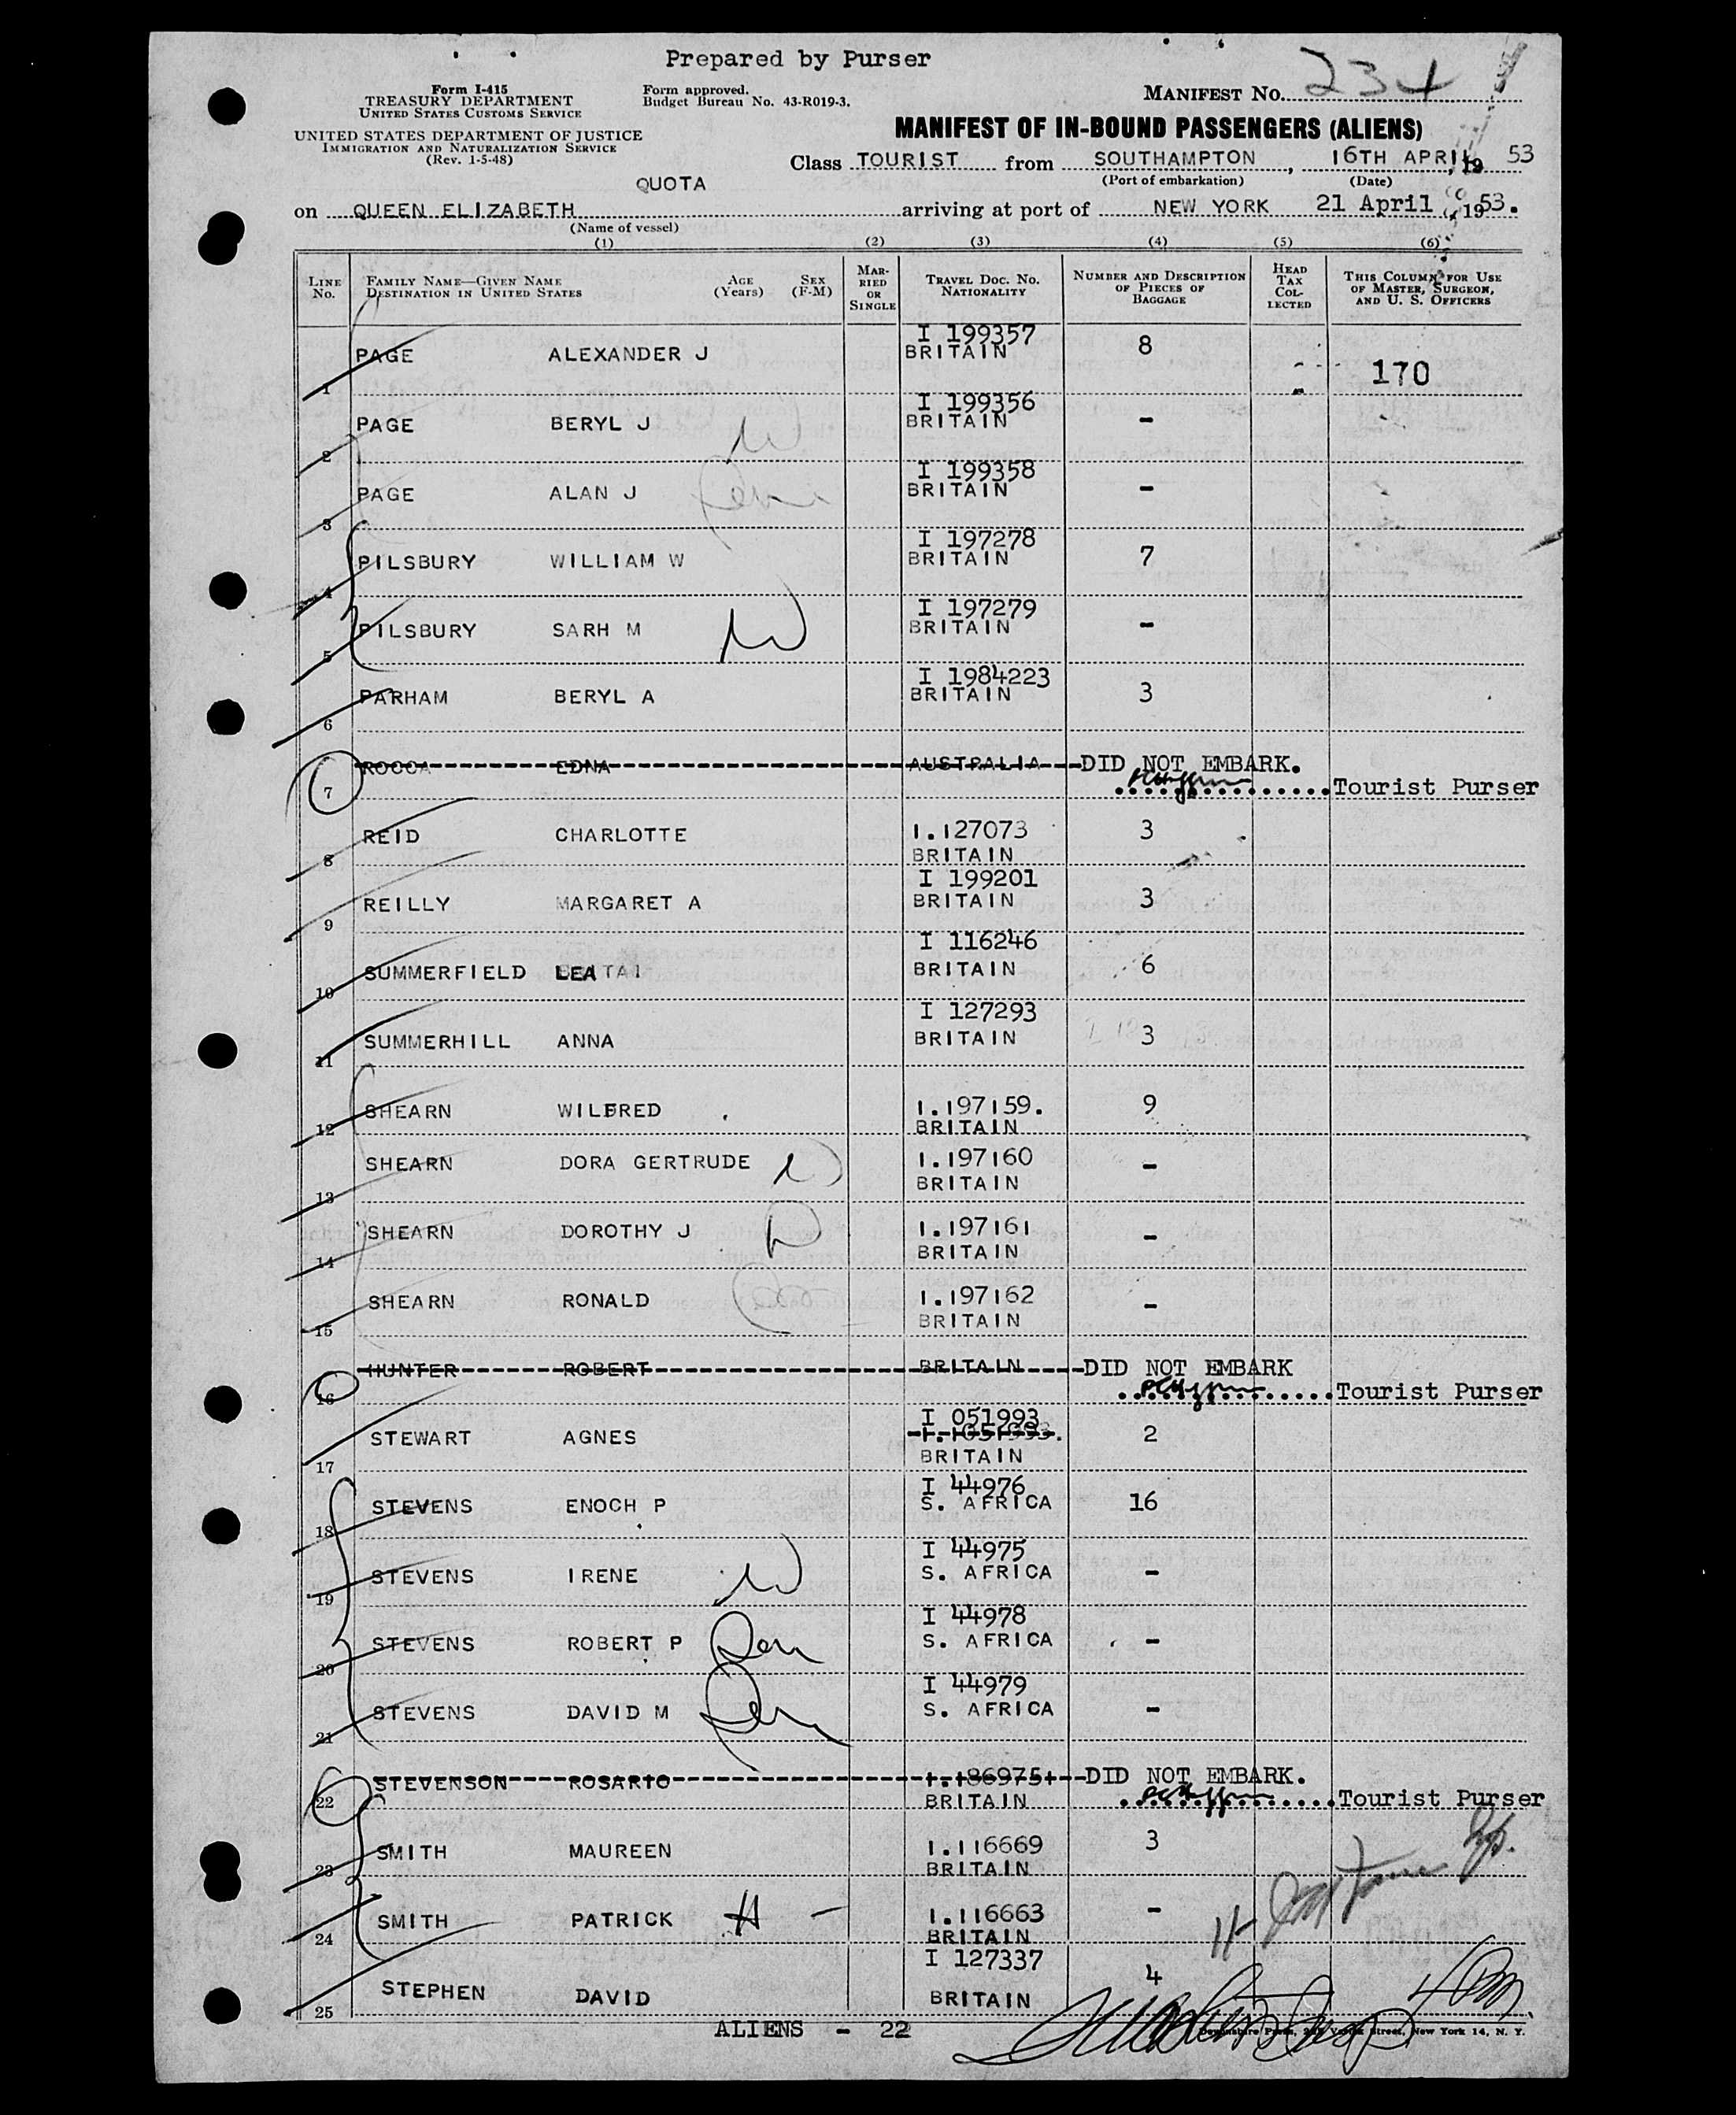 Prepared by Purser
Form I-415
TREASURY DEPARTMENT
UNITED STATES CUSTOMS SERVICE
UNITED STATES DEPARTMENT OF JUSTICE
IMMIGRATION AND NATURALIZATION SERVICE
(Rev. 1-5-48)
Form approved.
Budget Bureau No. 43-R019-3.
MANIFEST NO. 234
MANIFEST OF IN-BOUND PASSENGERS (ALIENS)
Class TOURIST from SOUTHAMPTON, 16TH APRIL, 19 53
(Port of embarkation) (Date)
QUOTA
on QUEEN ELIZABETH arriving at port of NEW YORK 21 April, 1953.
(Name of vessel)
(1) (2) (3) (4) (5) (6)
LINE NO. FAMILY NAME—GIVEN NAME DESTINATION IN UNITED STATES AGE (Years) SEX (F-M) MARRIED OR SINGLE TRAVEL DOC. NO. NATIONALITY NUMBER AND DESCRIPTION OF PIECES OF BAGGAGE HEAD TAX COLLECTED THIS COLUMN FOR USE OF MASTER, SURGEON, AND U. S. OFFICERS
1 PAGE ALEXANDER J I 199357 BRITAIN 8 170
2 PAGE BERYL J I 199356 BRITAIN -
3 PAGE ALAN J I 199358 BRITAIN -
4 PILSBURY WILLIAM W I 197278 BRITAIN 7
5 PILSBURY SARH M W I 197279 BRITAIN -
6 PARHAM BERYL A I 1984223 BRITAIN 3
7 ROCCA EDNA AUSTRALIA DID NOT EMBARK.
Tourist Purser
8 REID CHARLOTTE I.127073 BRITAIN 3
9 REILLY MARGARET A I 199201 BRITAIN 3
10 SUMMERFIELD LEA I 116246 BRITAIN 6
11 SUMMERHILL ANNA I 127293 BRITAIN 3
12 SHEARN WILFRED I.197159. BRITAIN 9
13 SHEARN DORA GERTRUDE I.197160 BRITAIN -
14 SHEARN DOROTHY J I.197161 BRITAIN -
15 SHEARN RONALD I.197162 BRITAIN -
16 HUNTER ROBERT BRITAIN DID NOT EMBARK
Tourist Purser
17 STEWART AGNES I 051993 I.1051993. BRITAIN 2
18 STEVENS ENOCH P I 44976 S. AFRICA 16
19 STEVENS IRENE W I 44975 S. AFRICA -
20 STEVENS ROBERT P I 44978 S. AFRICA -
21 STEVENS DAVID M I 44979 S. AFRICA -
22 STEVENSON ROSARIO I.186975I BRITAIN DID NOT EMBARK.
Tourist Purser
23 SMITH MAUREEN I.116669 BRITAIN 3
24 SMITH PATRICK I.116663 BRITAIN -
25 STEPHEN DAVID I 127337 BRITAIN 4
ALIENS - 22
Street, New York 14, N. Y.